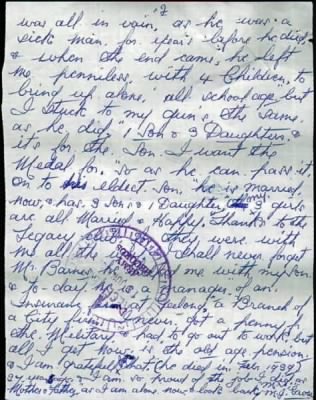 2
was all in vain, as he was a
sick man, for years before he died,
& when the end came, he left
me penniless with 4 Children, to
bring up alone, all school age but
I stuck to my guns, the same
as he did, 1 Son & 3 Daughters &
it's for the Son. I want the
Medal for, "so as he can pass it
on to his eldest Son, he is married,
now, & has 2 Sons & 1 Daughter, my 3 girls
are all Married & Happy "Thanks to the
Legacy they were with
me all the shall never forget
Mr. Baines, he me with my Son
& to-day he is a Manager, of an
Insurance at Geelong, a Branch of
a City firm never, got a penny of
the Military had to go out to work, but
all I get now, is the old age pension,
& I am grateful for that (he died in Feb, 1939)
24 years ago & I am so proud of the job I did as
Mother & Father, as I am alone now & look back, M. J.